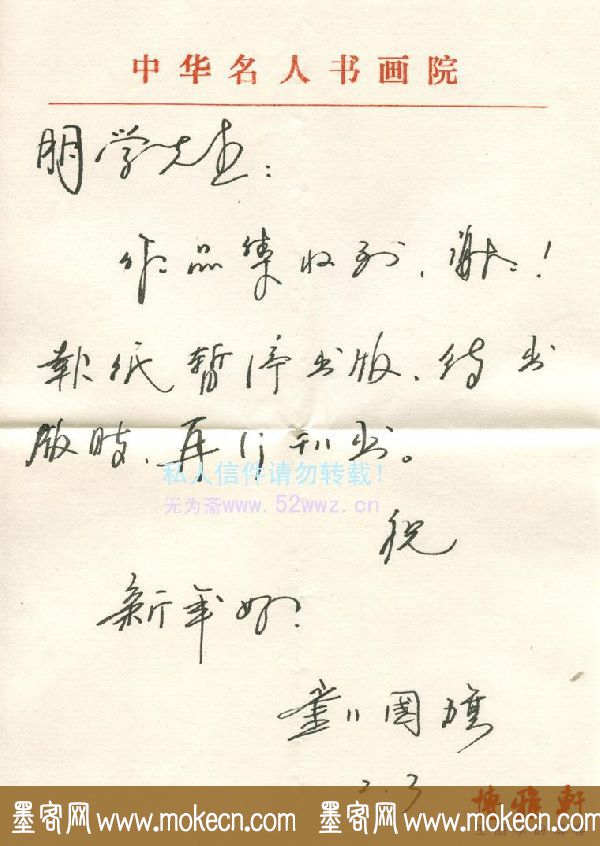 中华名人书画院
明学先生：
作品集收到，谢谢！
報纸暂停出版，待出
版时，再行刊出。
私人信件请勿转载！
无为斋www.52wwz.cn
祝
新年好！
国旗
2.3
博雅轩
墨客网 www.mokecn.com 墨客网 www.mokecn.com